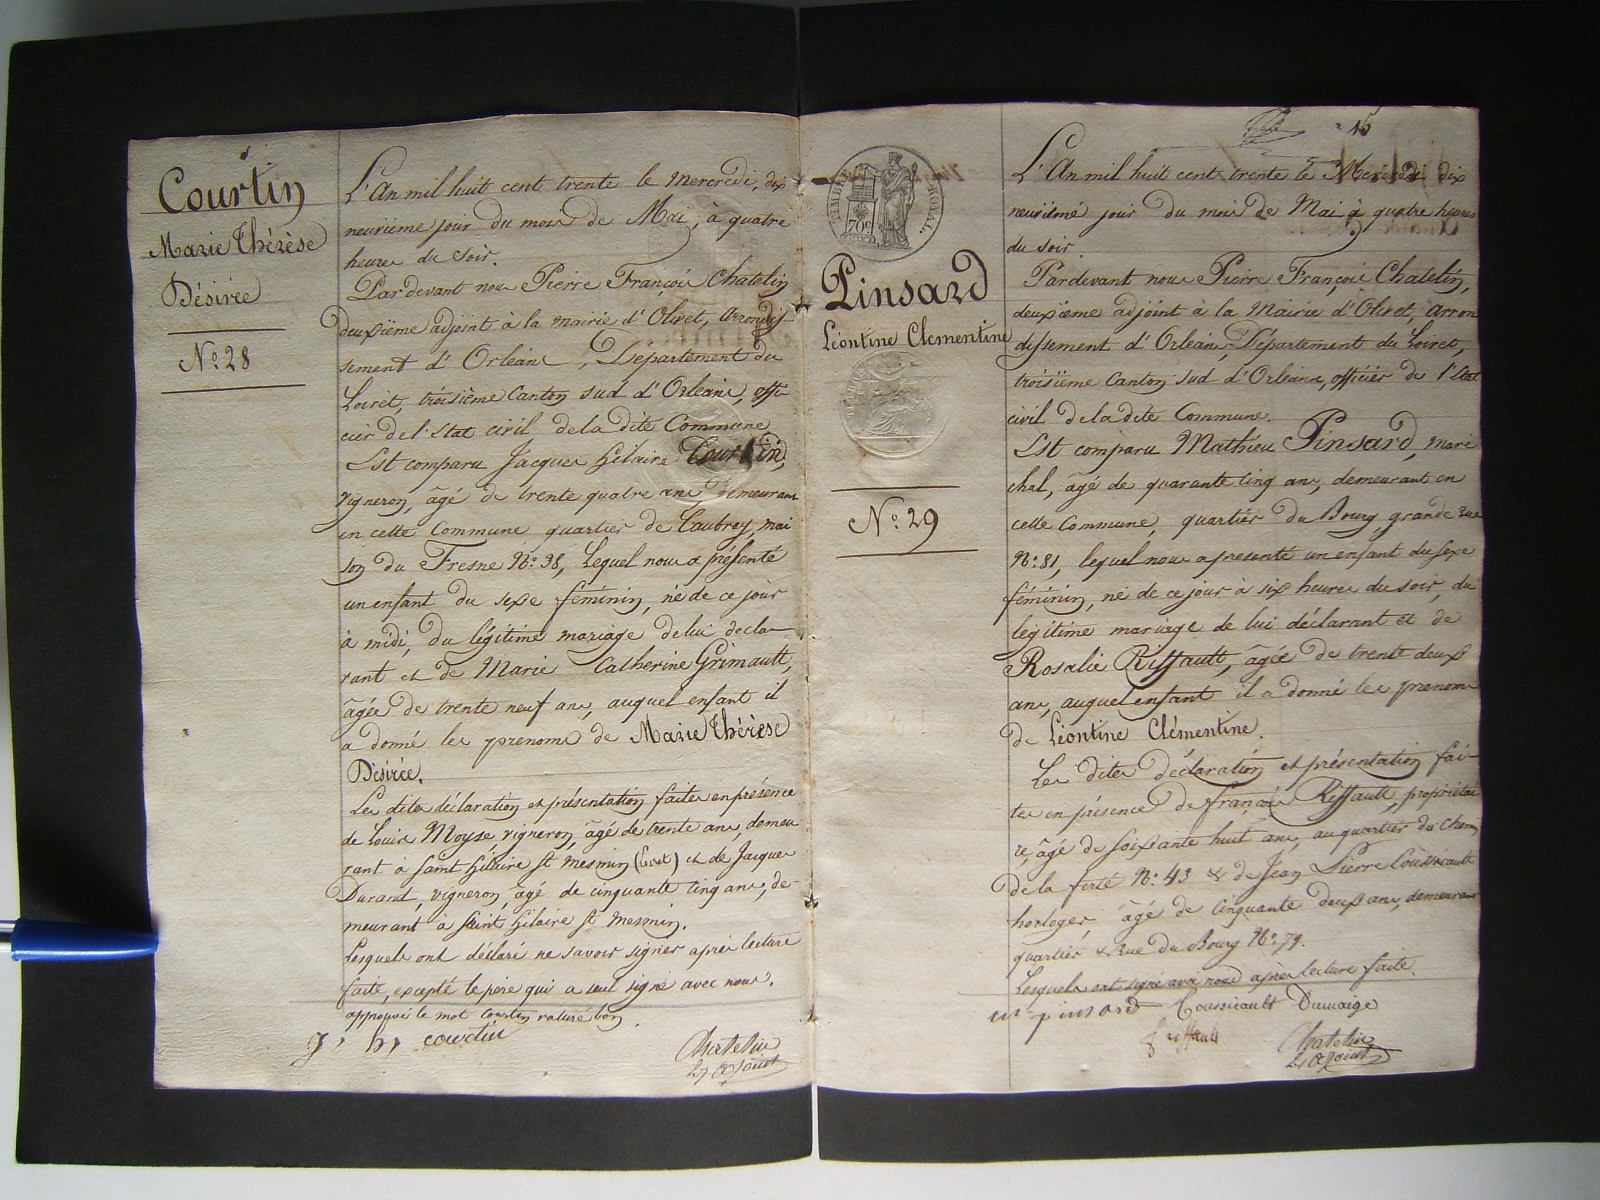 Courtin
Marie Thérèse
Désirée
N.º 28
L'An mil huit cent trente le Mercredi, dix
neuvième jour du mois de Mai, à quatre
heures du soir.
Pardevant nous Pierre François Chatelin
deuxième adjoint à la mairie d'Olivet, arrondis
sement d'Orléans, Département du
Loiret, troisième Canton sud d'Orléans, offi
cier de l'état civil de la dite Commune
Est comparu Jacques Hilaire Courtin,
vigneron, âgé de trente quatre ans, demeurant
en cette Commune quartier de Caubray, mai
son du Fresne N.º 38, Lequel nous a présenté
un enfant du sexe féminin, né de ce jour
à midi, du légitime mariage de lui décla-
rant et de Marie Catherine Grimault,
âgée de trente neuf ans, auquel enfant il
a donné les prenoms de Marie Thérèse
Désirée.
Les dites déclaration et présentation faites en présence
de Louis Moyse, vigneron, âgé de trente ans, demeu
rant à Saint Hilaire St Mesmin (Loiret) et de Jacques
Durand, vigneron, âgé de cinquante cinq ans, de-
meurant à Saint Hilaire St Mesmin.
Lesquels ont déclaré ne savoir signer après lecture
faite, excepté le père qui a seul signé avec nous.
approuvé le mot Courtin raturé bon.
J. h. courtin
Chatelin
2.e adjoint
15
TIMBRE ROYAL.
70c
Pinsard
Léontine Clementine
N.º 29
L'An mil huit cent trente le Mercredi dix
neuvième jour du mois de Mai à quatre heures
du soir.
Pardevant nous Pierre François Chatelin,
deuxième adjoint à la Mairie d'Olivet, arron
dissement d'Orléans, Département du Loiret,
troisième Canton sud d'Orléans, officier de l'état
civil de la dite Commune.
Est comparu Mathieu Pinsard, maré
chal, âgé de quarante cinq ans, demeurant en
cette Commune, quartier du Bourg, grande rue
N.º 81, lequel nous a présenté un enfant du sexe
féminin, né de ce jour à six heures du soir, du
légitime mariage de lui déclarant et de
Rosalie Riffault, âgée de trente deux
ans, auquel enfant il a donné les prenoms
de Léontine Clémentine.
Les dites déclaration et présentation fai-
tes en présence de françois Riffault, propriétai
re, âgé de soixante huit ans, au quartier du Chemin
de la ferté N.º 43 & de Jean Pierre Coussicault
horloger, âgé de cinquante deux ans, demeurant
quartier & Rue du Bourg N.º 79.
Lesquels ont signé avec nous après lecture faite.
m pinsard Coussicault Dumaige
f riffault
Chatelin
2.e adjoint